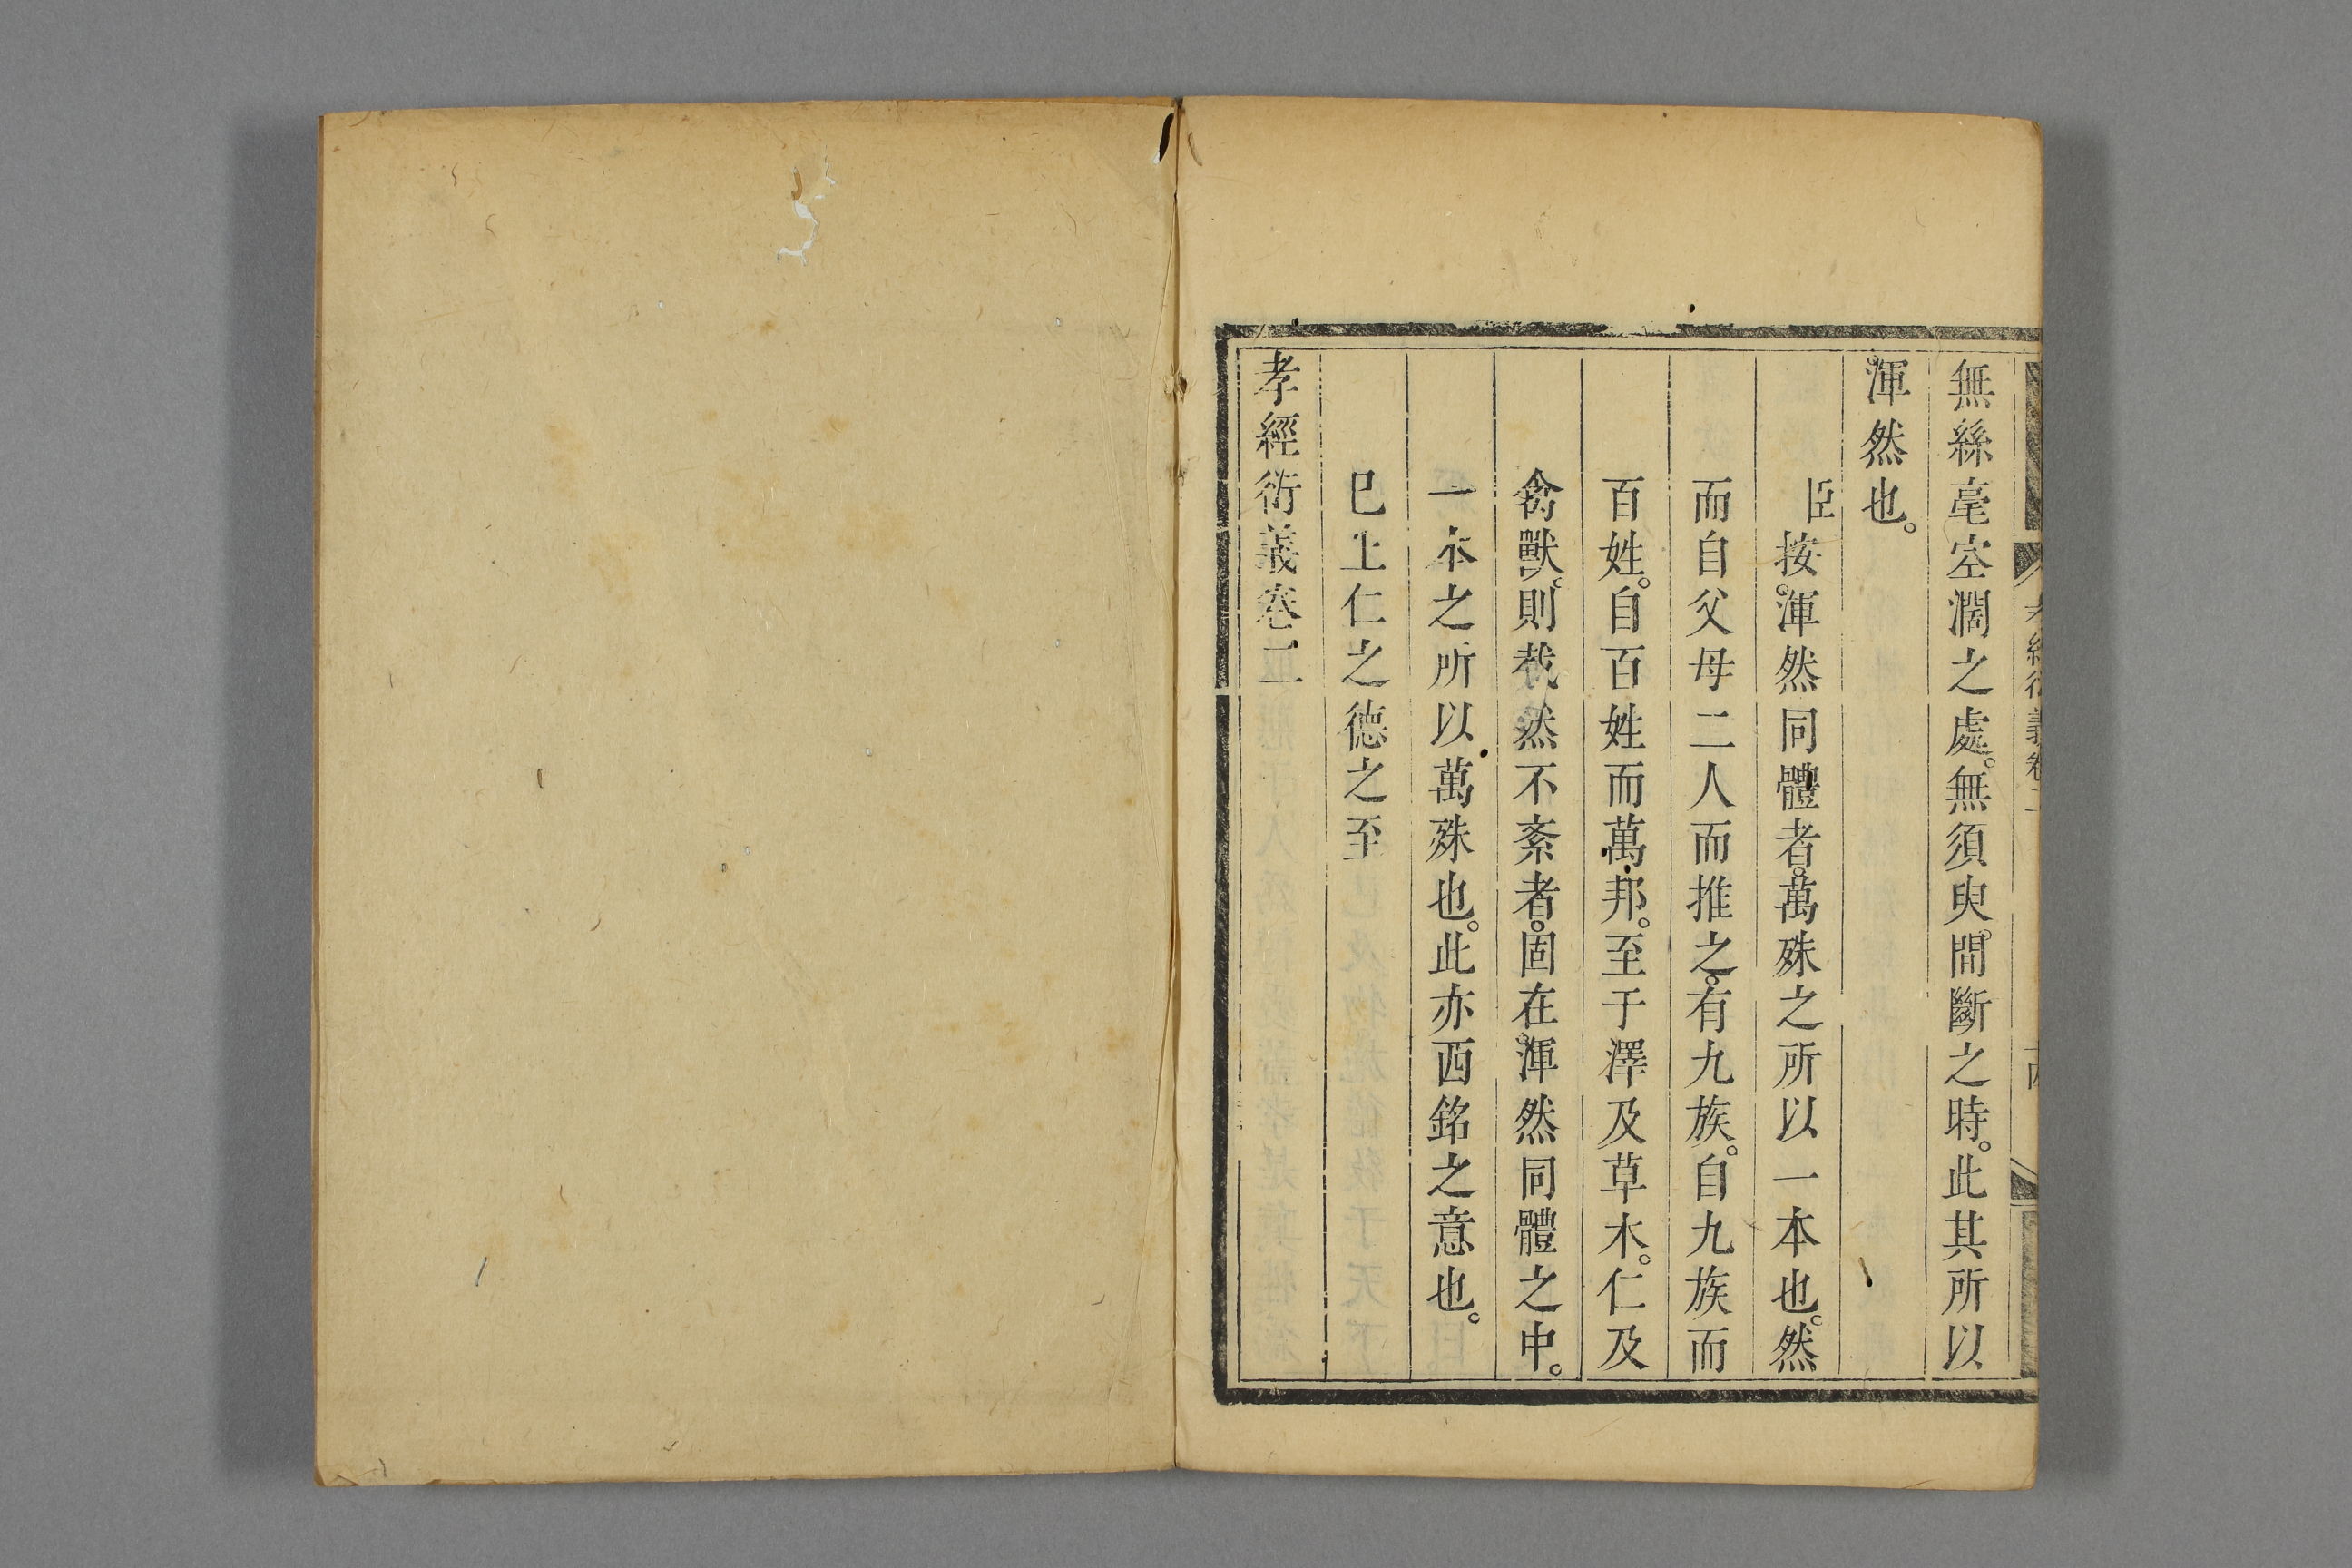 無絲毫空濶之處。無須臾間斷之時。此其所以
渾然也。
臣按。渾然同體者。萬殊之所以一本也。然
而自父母二人而推之。有九族。自九族而
百姓。自百姓而萬邦。至于澤及草木。仁及
禽獸。則截然不紊者。固在渾然同體之中。
一本之所以萬殊也。此亦西銘之意也。
巳上仁之德之至
孝經衍義卷二